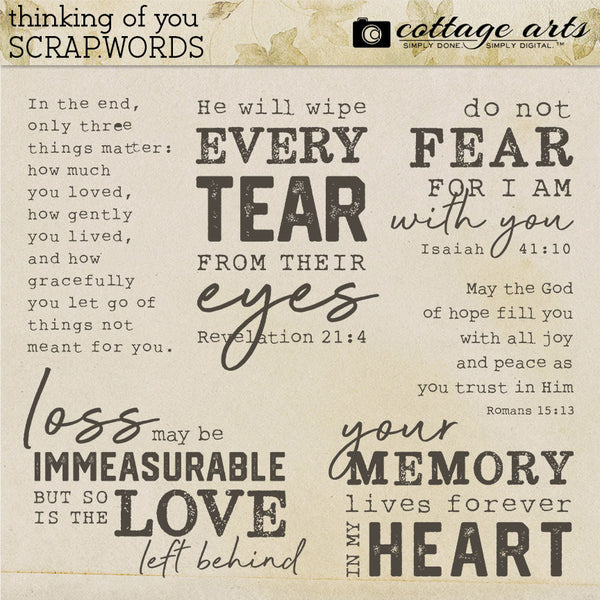 thinking of you
SCRAP.WORDS
cottage arts
SIMPLY DONE. SIMPLY DIGITAL.™
In the end,
only three
things matter:
how much
you loved,
how gently
you lived,
and how
gracefully
you let go of
things not
meant for you.
He will wipe
EVERY
TEAR
FROM THEIR
eyes
Revelation 21:4
do not
FEAR
FOR I AM
with you
Isaiah 41:10
May the God
of hope fill you
with all joy
and peace as
you trust in Him
Romans 15:13
loss may be
IMMEASURABLE
BUT SO
IS THE LOVE
left behind
your
MEMORY
lives forever
IN MY HEART